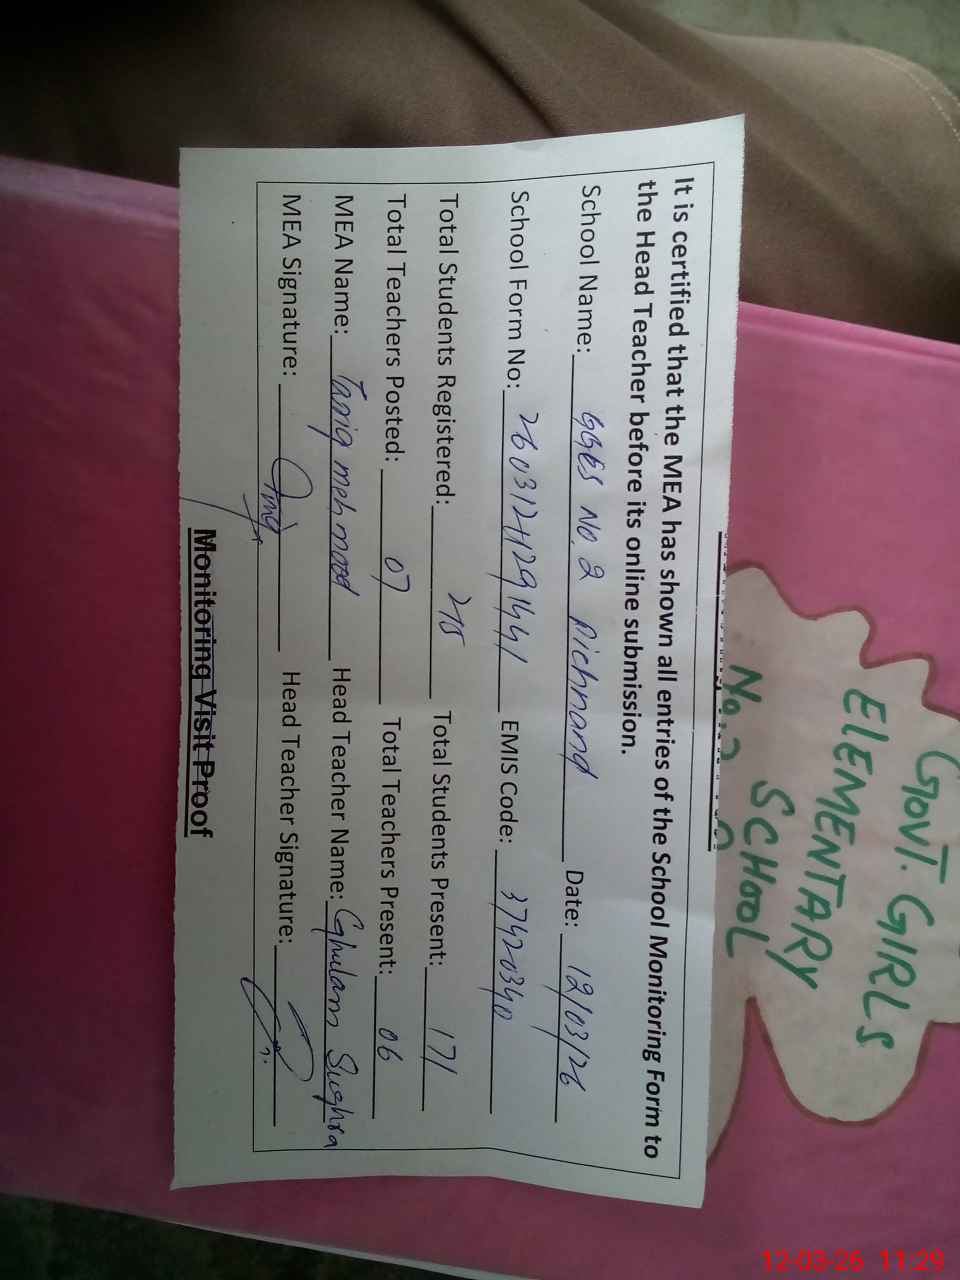 It is certified that the MEA has shown all entries of the School Monitoring Form to
the Head Teacher before its online submission.
School Name: GGES No. 2 Pichnand Date: 12/03/26
School Form No: EMIS Code: 37420340
Total Students Registered: Total Students Present: 171
Total Teachers Posted: 07 Total Teachers Present: 06
MEA Name: Tariq mehmood Head Teacher Name: Ghulam Sughra
MEA Signature: Head Teacher Signature:
Monitoring Visit Proof
GOVT. GIRLS
ElEMENTARY
SCHOOL
No. 2
12-03-26 11:29